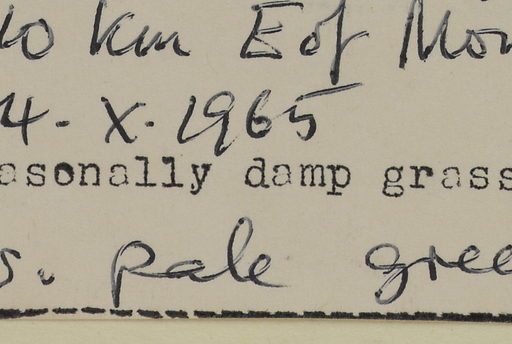 40 km E of Mon
4. X. 1965
asonally damp grass
s. pale gree